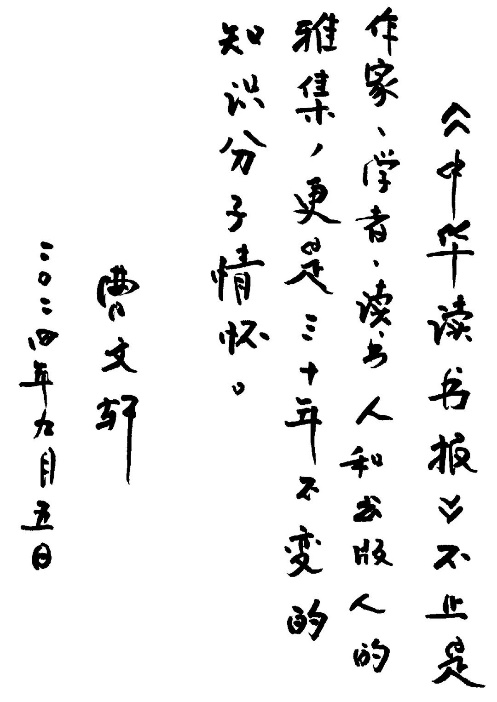 《中华读书报》不止是
作家、学者、读书人和出版人的
雅集，更是三十年不变的
知识分子情怀。
曹文轩
二〇二四年九月五日